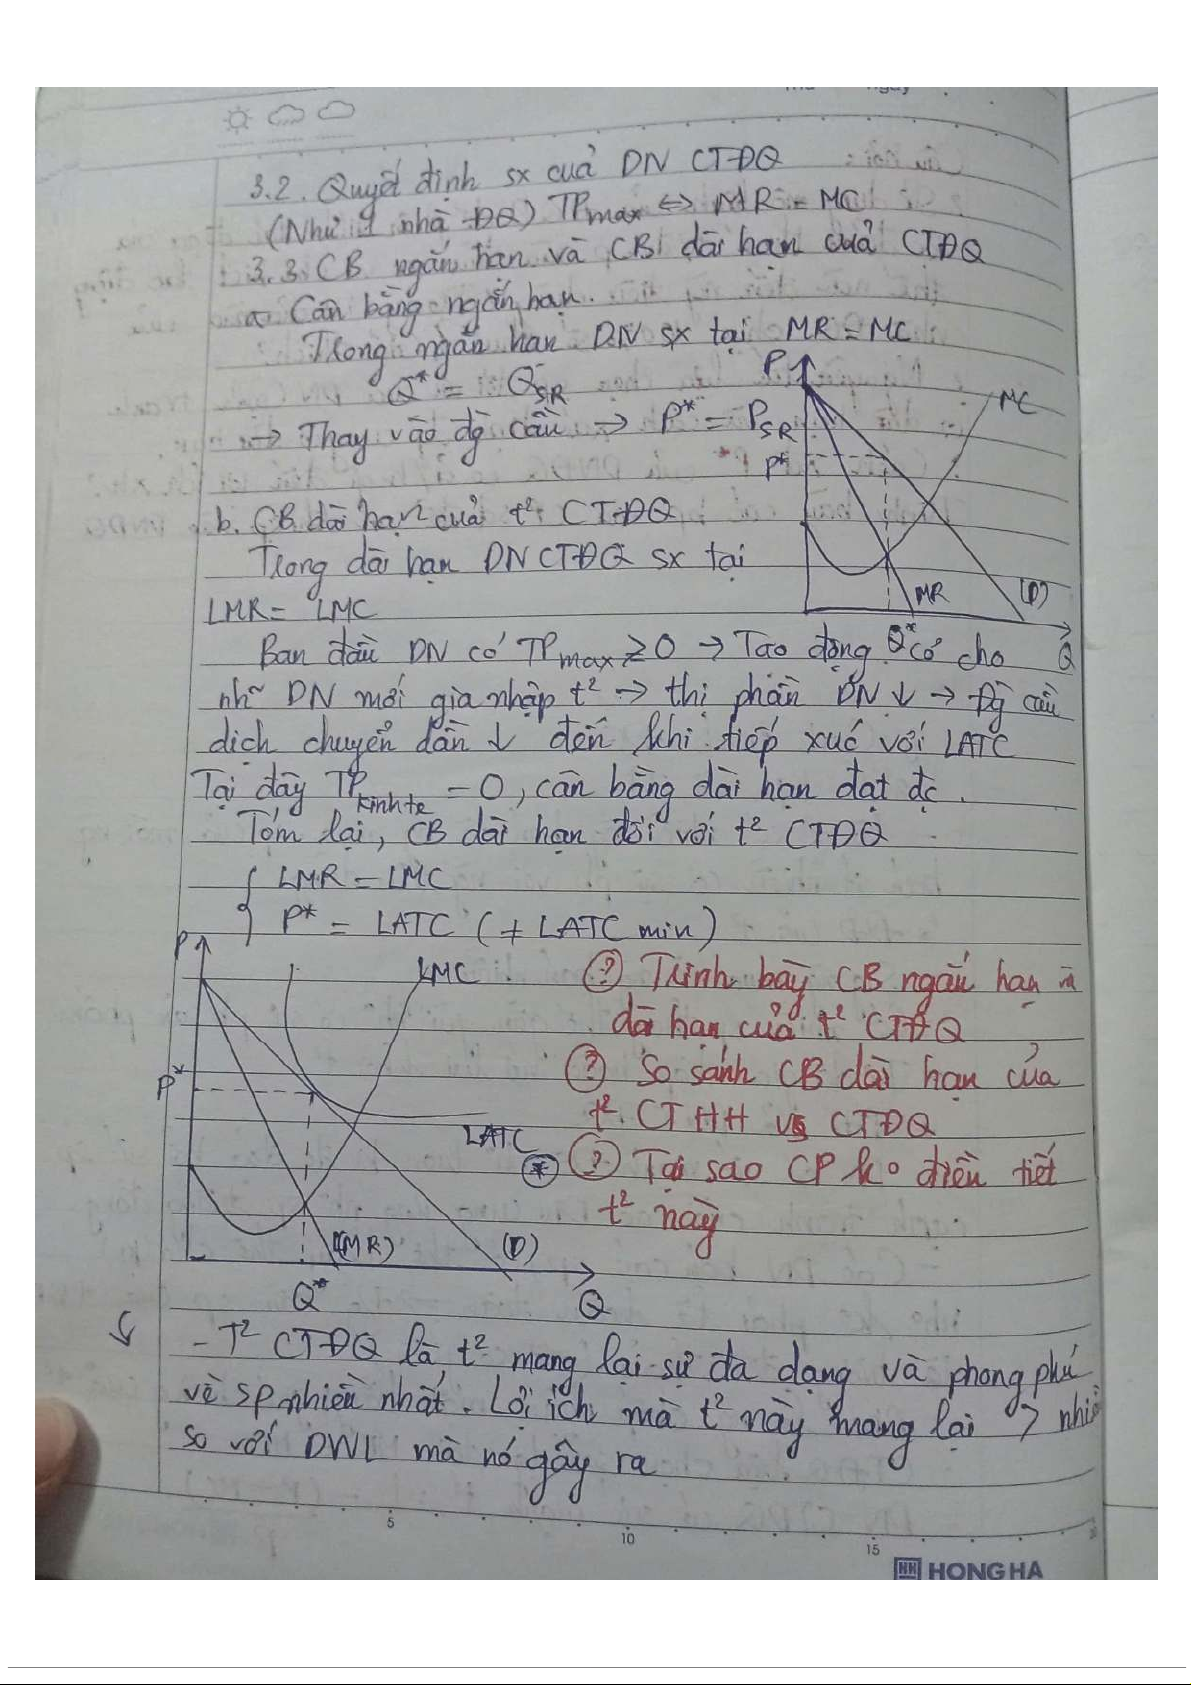 3.2. Quyết định sx của DN CTĐQ
(Như 1 nhà ĐQ) TPmax ↔ MR = MC
3.3. CB ngắn hạn và CB dài hạn của CTĐQ
a. Cân bằng ngắn hạn.
Trong ngắn hạn DN sx tại MR = MC
Q* = QSR
→ Thay vào đg cầu → P* = PSR
P
MC
P*
MR
(D)
Q*
Q
b. CB dài hạn của t² CTĐQ
Trong dài hạn DN CTĐQ sx tại
LMR = LMC
Ban đầu DN có TPmax ≥ 0 → Tạo động cơ cho
nh~ DN mới gia nhập t² → thị phần DN ↓ → Đg cầu
dịch chuyển dần ↓ đến khi tiếp xúc với LATC
Tại đây TPkinh tế = 0, cân bằng dài hạn đạt đc.
Tóm lại, CB dài hạn đối với t² CTĐQ
{ LMR = LMC
P* = LATC (≠ LATC min)
P
LMC
P*
LATC
(MR)
(D)
Q*
Q
? Trình bày CB ngắn hạn và
dài hạn của t² CTĐQ
? So sánh CB dài hạn của
t² CTHH vs CTĐQ
* ? Tại sao CP ko điều tiết
t² này
- T² CTĐQ là t² mang lại sự đa dạng và phong phú
về sp nhiều nhất. Lợi ích mà t² này mang lại > nhiều
so với DWL mà nó gây ra
5
10
15
HONG HA